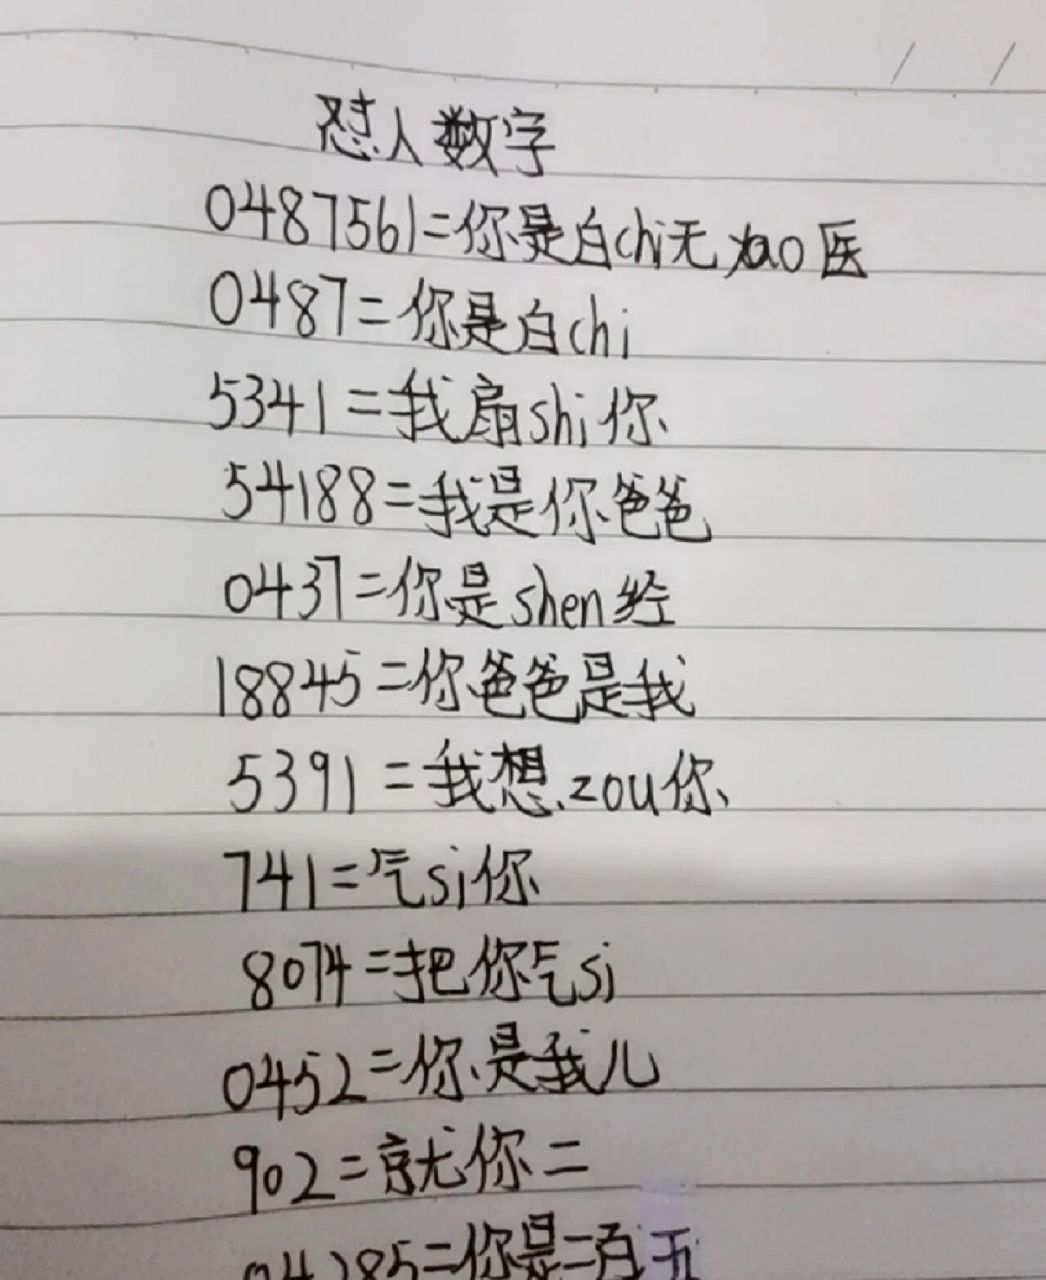 怼人数字
0487561=你是白chi无yao医
0487=你是白chi
5341=我扇shi你
54188=我是你爸爸
0437=你是shen经
18845=你爸爸是我
5391=我想zou你
741=气si你
8074=把你气si
0452=你是我儿
902=就你二
04285=你是二百五